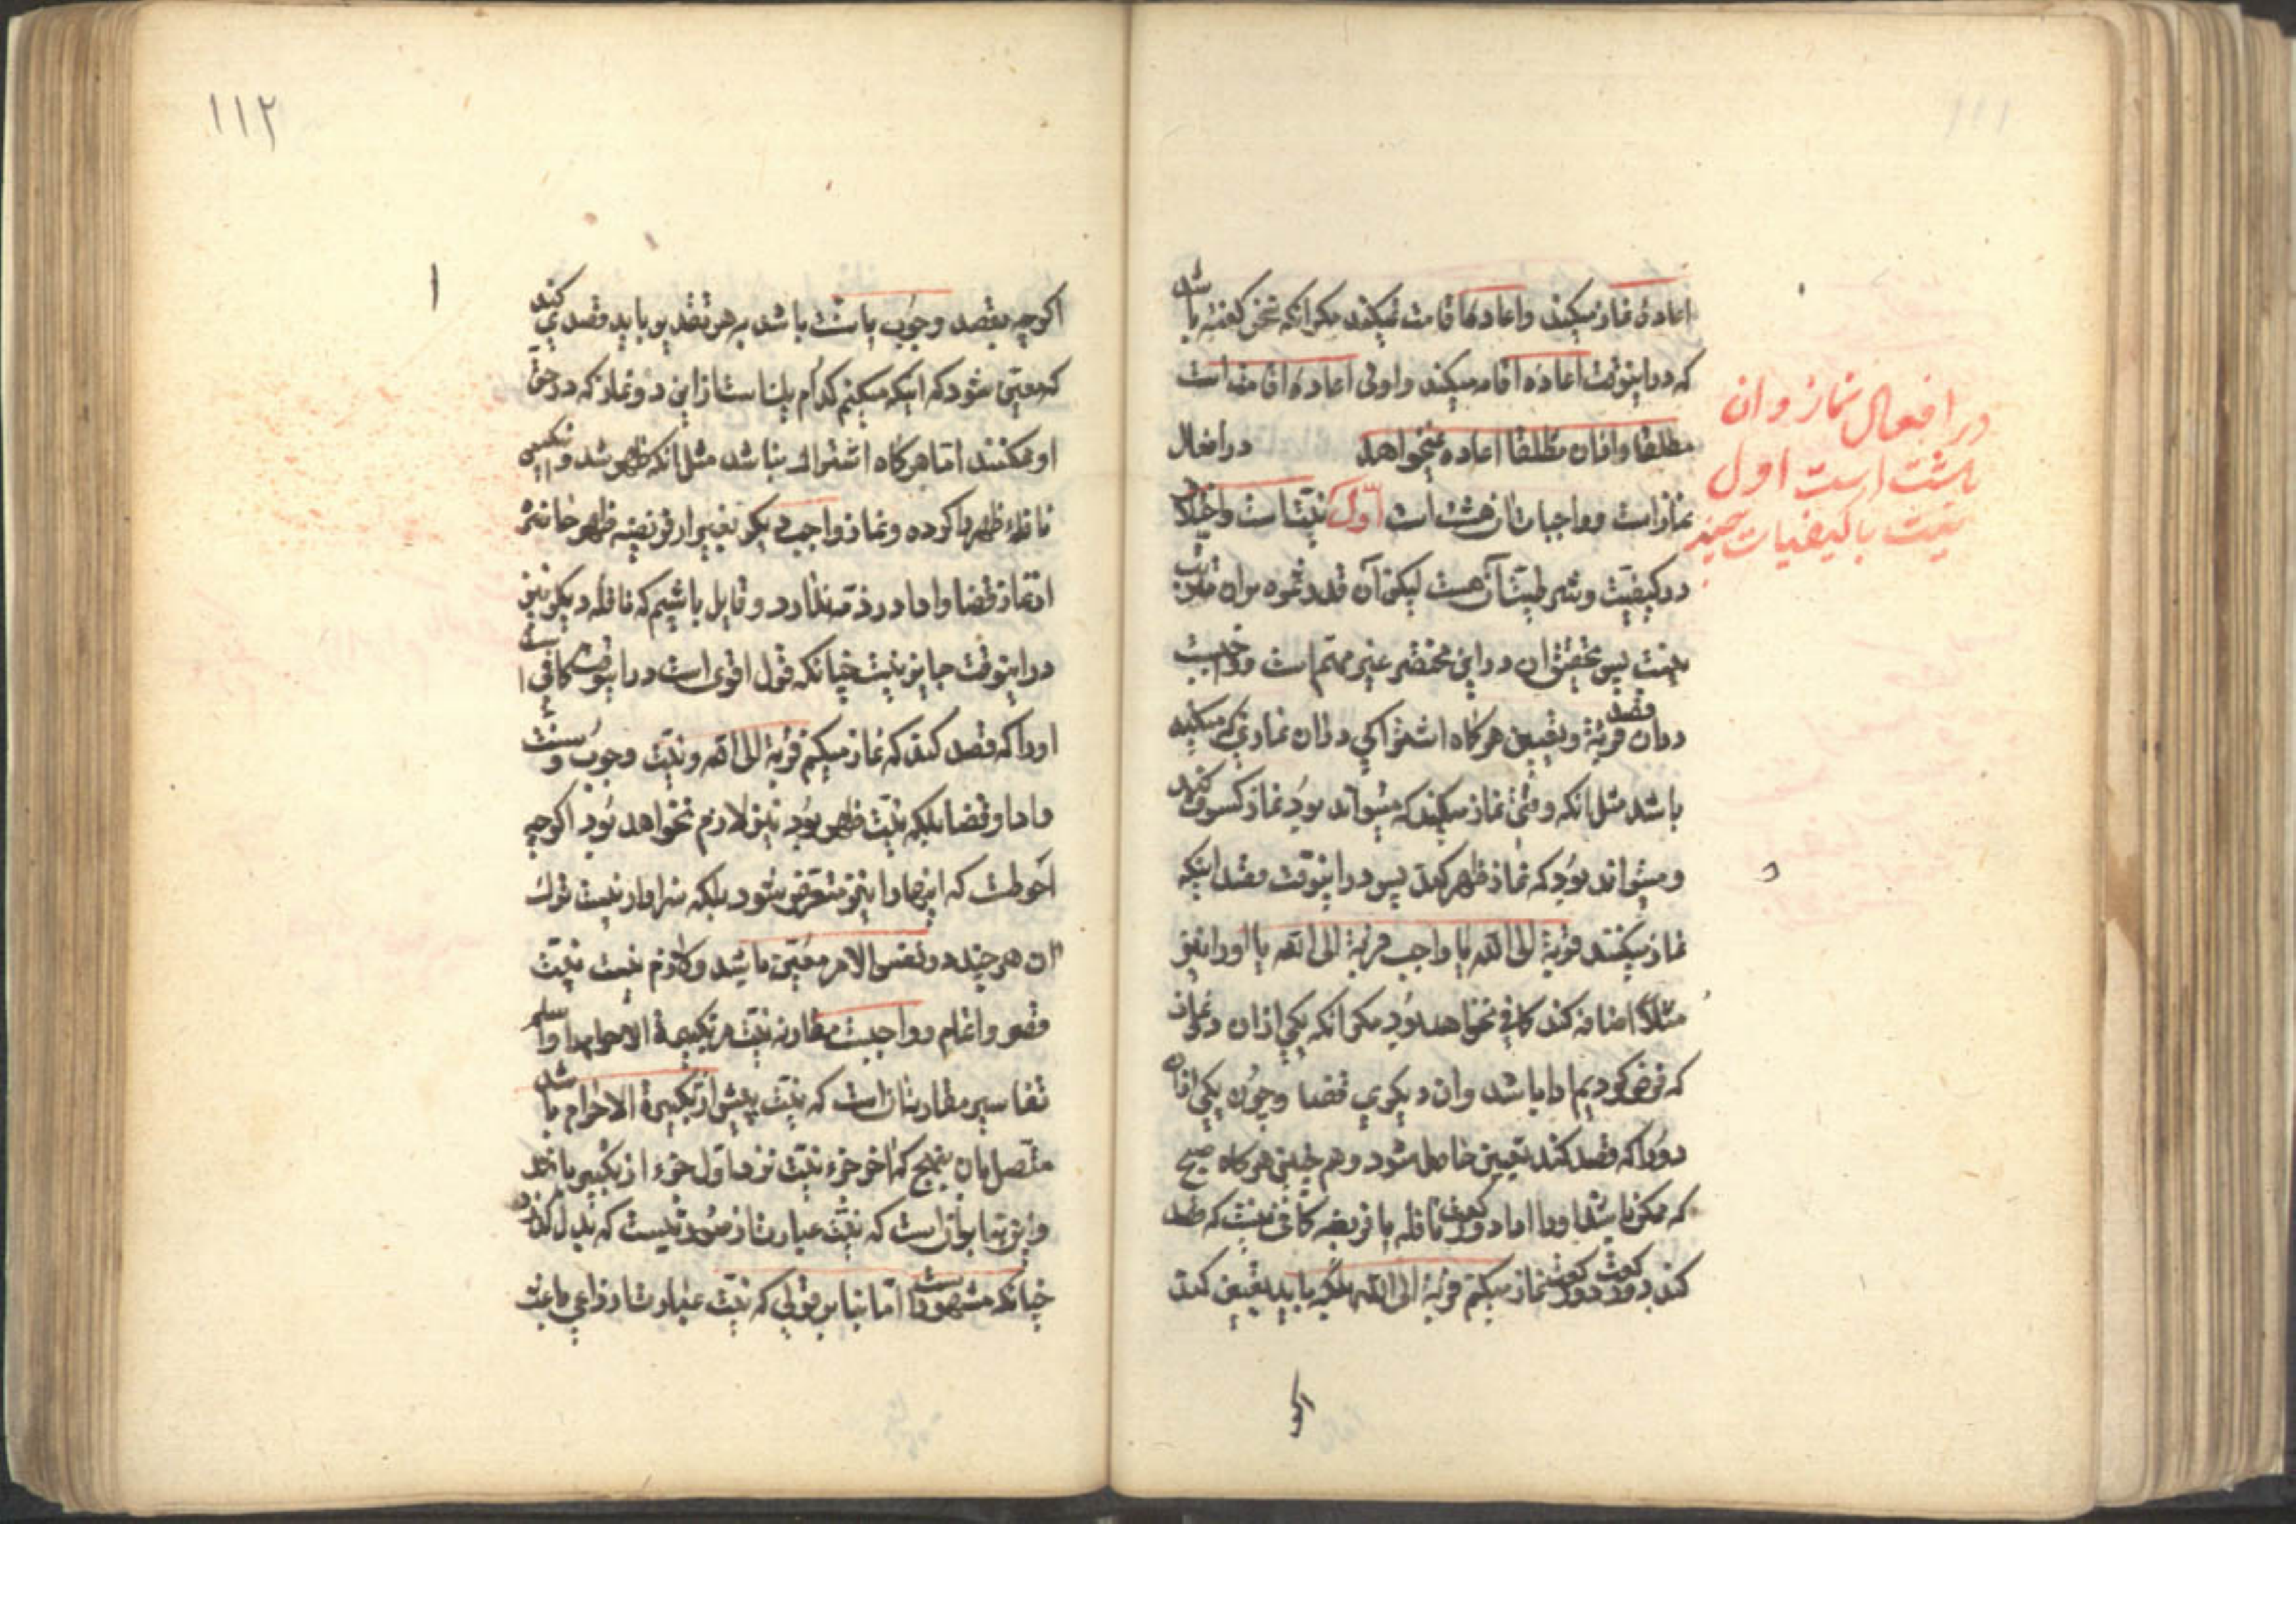 ١١١
اعادهٔ نماز میکند و اعادهٔ اقامت نمیکند مکر انکه سخن کفته باشد
که در اینوقت اعادهٔ اقامه میکند و اولی اعادهٔ اقامت است
مطلقا و اذان مطلقا اعاده نمیخواهد در افعال
نماز است و واجبات ان هشت است اوّل نیّت است و اختلاف
در کیفیّت و شرطیّت آن هست لیکن آن قدر ثمره بران مترتّب
نیست پس تحقیق ان در این مختصر غیر مهمّ است و واجبست
دران قصد قربة و تعیین هرکاه اشتراکی دران نمازی که میکند
باشد مثل انکه وقتی نماز میکند که میتواند بود نماز کسوف کند
و میتواند بود که نماز ظهر کند پس در اینوقت قصد اینکه
نماز میکنند قربة الی الله یا واجب قربة الی الله یا ادا را نیز
مثلاً اضافه کند کافی نخواهد بود مکر انکه یکی از ان دو نماز
که فرض کردیم ادا باشد و ان دیکری قضا و چون یکی از ان
دو را که قصد کند تعیین حاصل شود و هم چنین هرکاه صبح
که ممکن باشد او را ادا دو رکعت نافله یا فریضه کافی نیست که قصد
کند دو رکعت دو رکعت نماز میکنم قربة الی الله بلکه باید تعیین کند
اکر
در افعال نماز و ان
هشت است اول
نیت با کیفیات چند
١١٢
اکرچه بقصد وجوب یا سنّت باشد بهر تقدیر باید قصدی کند
که معیّن شود که اینکه میکنم کدام یک است از این دو نماز که در حقّ
او ممکنند امّا هرکاه اشتراک نباشد مثل انکه ظهر شد و کسی
نافلهٔ ظهر را کرده و نماز واجب دیکر بغیر از فریضهٔ ظهر حاضر
از نماز قضا و ادا در ذمّه ندارد و قایل باشیم که نافله دیکر نیز
در اینوقت جایز نیست چنانکه قول اقوی است در اینوقت کافی است
او را که قصد کند که نماز میکنم قربة الی الله و نیّت وجوب و سنّت
و ادا و قضا بلکه نیّت ظهر بود نیز لازم نخواهد بود اکرچه
احوطست که اینها را نیز متعرّض شود بلکه سزاوار نیست ترک
ان هر چند در نفس الامر معیّن باشد و لازم نیست نیّت
قصر و اتمام و واجبست مقارنه نیّت مر تکبیرة الاحرام را و اسلم
تفاسیر مقارنت ان است که نیّت پیش از تکبیرة الاحرام باشد
متّصل بان بنهج که اخر جزء نیّت نزد اوّل جزء از تکبیر باشد
و این بنا بر ان است که نیّت عبارت از صورتیست که بدل کذرد
چنانکه مشهور است امّا بنا بر قولی که نیّت عبارت از داعی و باعث